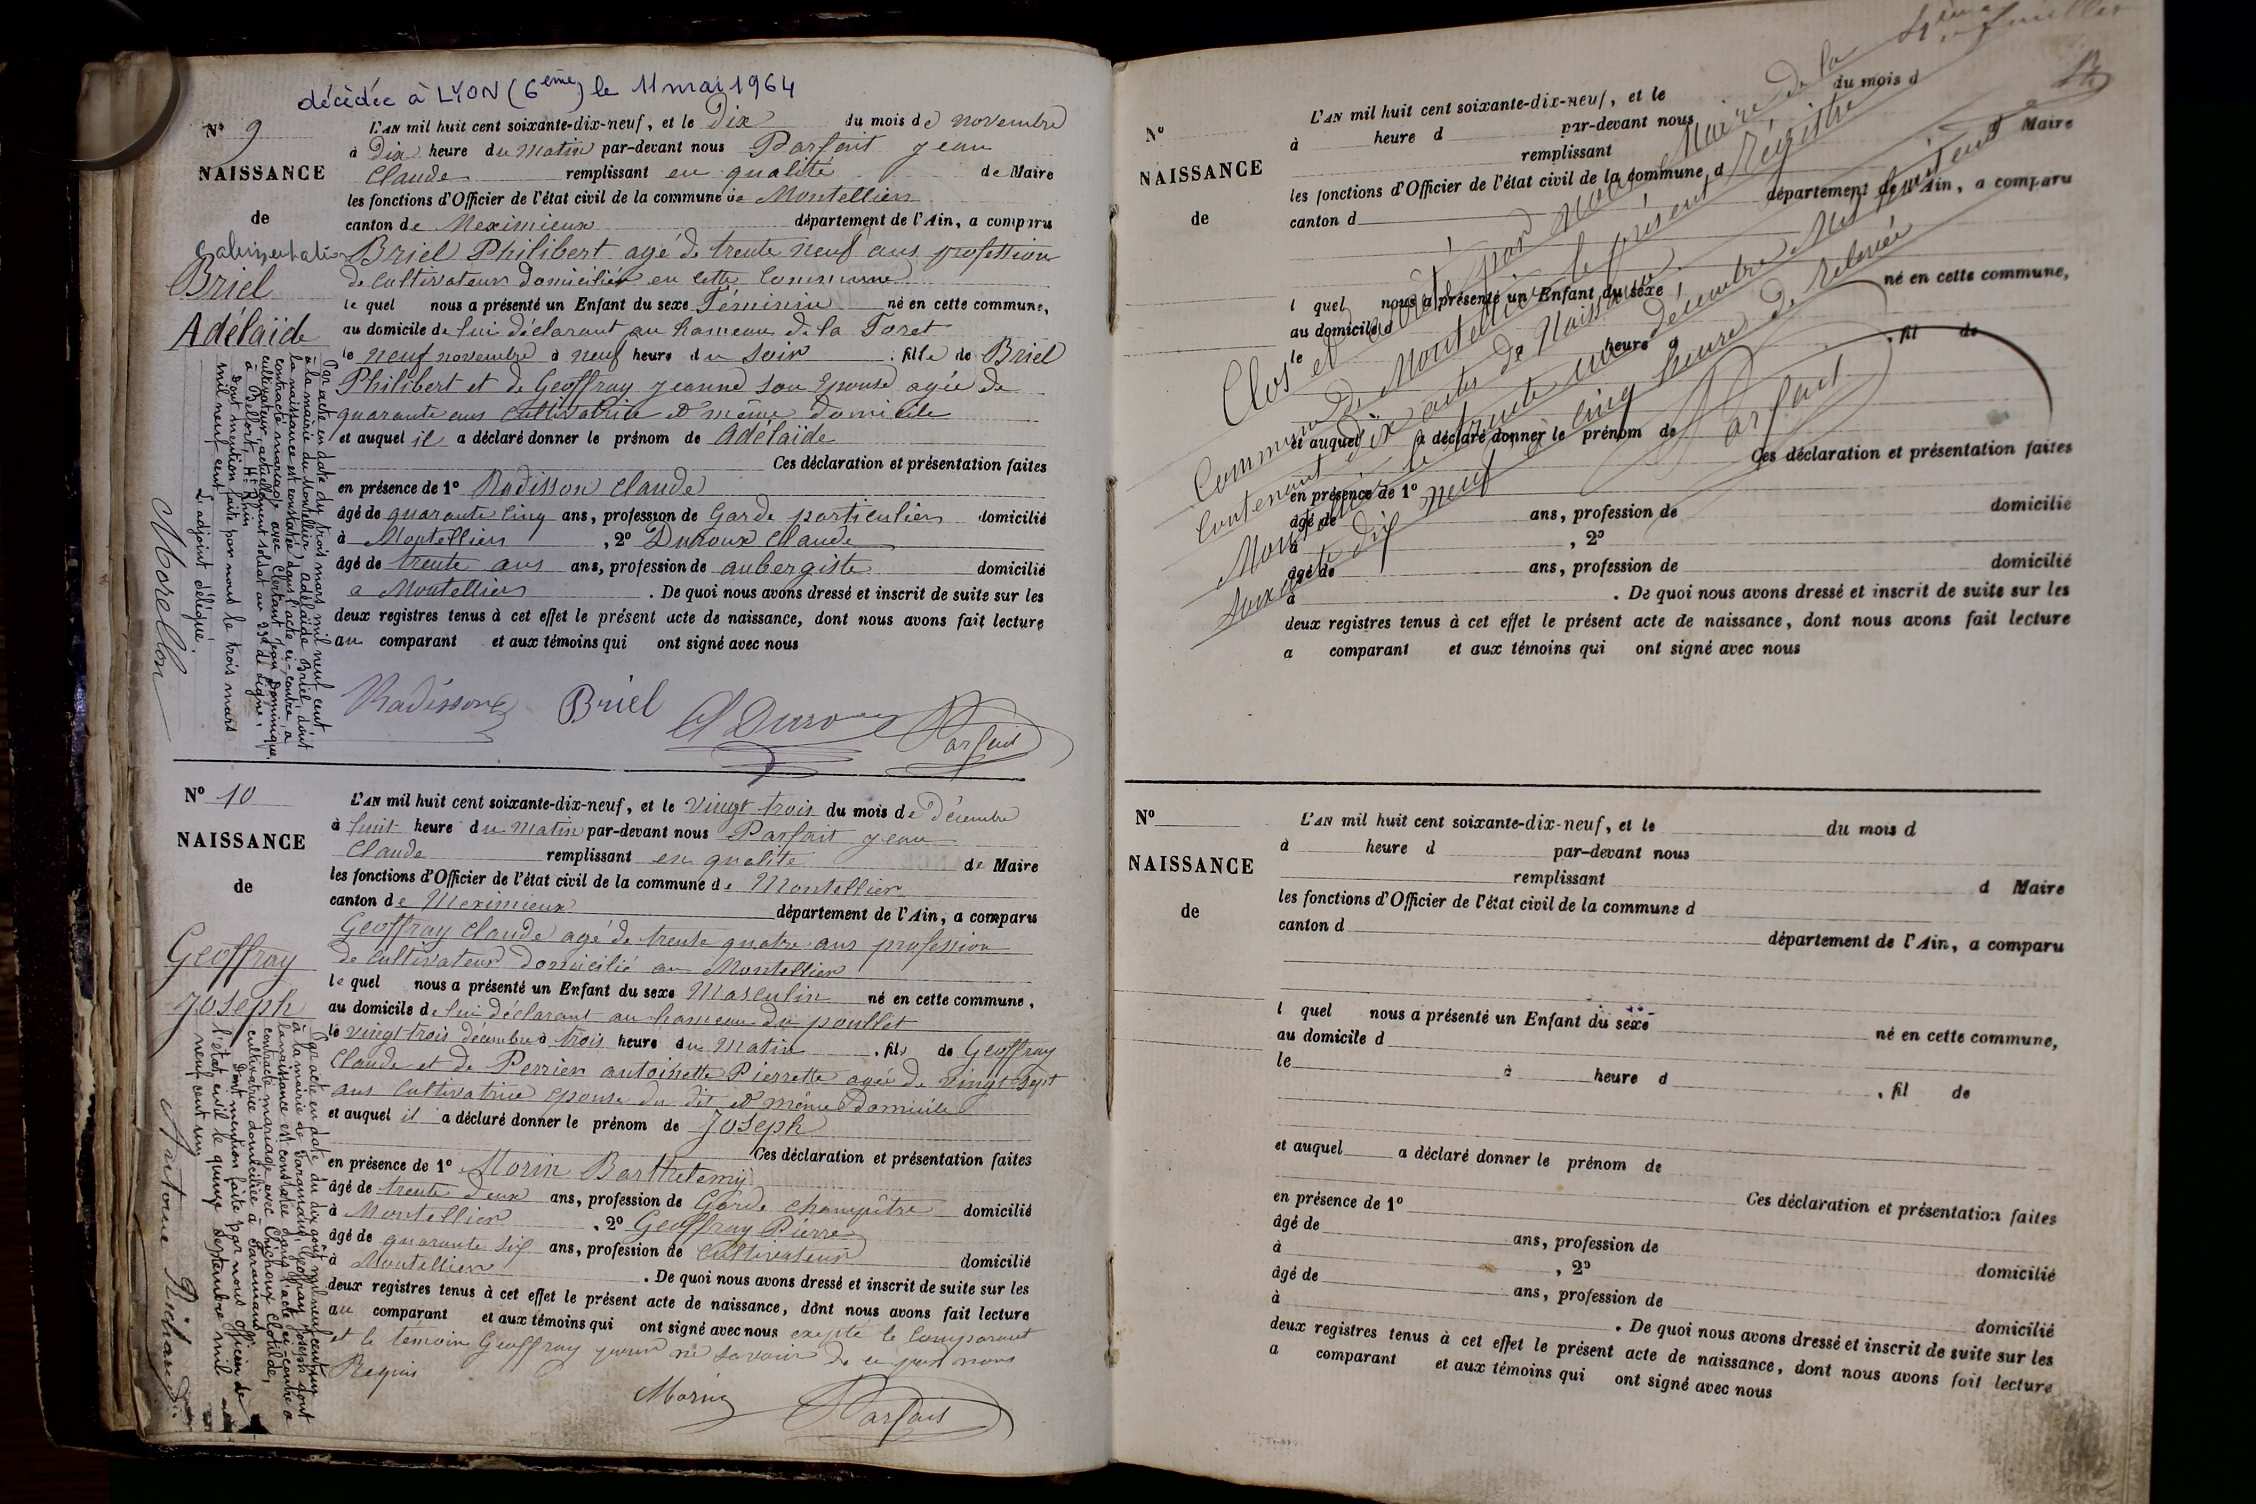 décédée à LYON (6ème) le 11 mai 1964
N° 9
NAISSANCE
de
Briel
Adélaïde
L'AN mil huit cent soixante-dix-neuf, et le Dix du mois de novembre
à Dix heure du matin par-devant nous Parfait jean
Claude remplissant en qualité de Maire
les fonctions d'Officier de l'état civil de la commune de Montellier
canton de Meximieux département de l'Ain, a comparu
Briel Philibert agé de trente neuf ans profession
de cultivateur domicilié en cette Commune
le quel nous a présenté un Enfant du sexe Féminin né en cette commune,
au domicile de lui déclarant au hameau de la Foret
le neuf novembre à neuf heure du soir, fille de Briel
Philibert et de Geoffray jeanne son épouse agée de
quarante ans cultivatrice et même domicile
et auquel il a déclaré donner le prénom de Adélaïde
Ces déclaration et présentation faites
en présence de 1° Radisson Claude
âgé de quarante cinq ans, profession de Garde particulier domicilié
à Montellier, 2° Duroux Claude
âgé de trente ans ans, profession de aubergiste domicilié
a Montellier. De quoi nous avons dressé et inscrit de suite sur les
deux registres tenus à cet effet le présent acte de naissance, dont nous avons fait lecture
au comparant et aux témoins qui ont signé avec nous
Radisson Briel Cl Duroux Parfait
Par acte en date du trois mars mil neuf cent,
à la mairie du Montellier, Adélaïde Briel, dont
la naissance est constatée dans l'acte ci-contre, a
contracté mariage avec Clertant Jean Dominique
cultivateur, actuellement soldat au de ligne,
à Belfort, Ht Rhin.
Dont mention faite par nous le trois mars
mil neuf cent.
L'adjoint délégué,
Morellon
N° 10
NAISSANCE
de
Geoffray
Joseph
L'AN mil huit cent soixante-dix-neuf, et le vingt trois du mois de Décembre
à huit heure du matin par-devant nous Parfait jean
Claude remplissant en qualité de Maire
les fonctions d'Officier de l'état civil de la commune de Montellier
canton de Meximieux département de l'Ain, a comparu
Geoffray Claude agé de trente quatre ans profession
de cultivateur domicilié au Montellier
le quel nous a présenté un Enfant du sexe Masculin né en cette commune,
au domicile de lui déclarant au hameau du poullet
le vingt trois décembre à trois heure du matin, fils de Geoffray
Claude et de Perrier antoinette Pierrette agée de vingt sept
ans cultivatrice épouse du dit et même domicile
et auquel il a déclaré donner le prénom de Joseph
Ces déclaration et présentation faites
en présence de 1° Morin Barthelemy
âgé de trente deux ans, profession de Garde champêtre domicilié
à Montellier, 2° Geoffray Pierre
âgé de quarante six ans, profession de cultivateur domicilié
à Montellier. De quoi nous avons dressé et inscrit de suite sur les
deux registres tenus à cet effet le présent acte de naissance, dont nous avons fait lecture
au comparant et aux témoins qui ont signé avec nous exepté le comparant
et le témoin Geoffray pour ne savoir de ce par nous
Requis
Morin Parfait
Par acte en date du dix août mil neuf cent un
à la mairie de Faramans, Geoffray Joseph dont
la naissance est constatée dans l'acte ci-contre a
contracté mariage avec Clotilde,
cultivatrice domiciliée à Faramans.
Dont mention faite par nous officier de
l'état civil le quinze septembre mil
neuf cent un
Antoine Richard
N°
NAISSANCE
de
L'AN mil huit cent soixante-dix-neuf, et le du mois d
à heure d par-devant nous
remplissant d Maire
les fonctions d'Officier de l'état civil de la commune d
canton d département de l'Ain, a comparu
l quel nous a présenté un Enfant du sexe né en cette commune,
au domicile d
le heure d, fil de
et auquel a déclaré donner le prénom de
Ces déclaration et présentation faites
en présence de 1°
âgé de ans, profession de domicilié
à, 2°
âgé de ans, profession de domicilié
à. De quoi nous avons dressé et inscrit de suite sur les
deux registres tenus à cet effet le présent acte de naissance, dont nous avons fait lecture
a comparant et aux témoins qui ont signé avec nous
Clos et arrêté par nous Maire de la
Commune de Montellier le présent Régistre
Contenant dix actes de Naissance
Montellier le trente un décembre mil huit cent
soixante dix neuf à cinq heure de relevée
Parfait
N°
NAISSANCE
de
L'AN mil huit cent soixante-dix-neuf, et le du mois d
à heure d par-devant nous
remplissant d Maire
les fonctions d'Officier de l'état civil de la commune d
canton d département de l'Ain, a comparu
l quel nous a présenté un Enfant du sexe né en cette commune,
au domicile d
le à heure d, fil de
et auquel a déclaré donner le prénom de
Ces déclaration et présentation faites
en présence de 1°
âgé de ans, profession de domicilié
à, 2°
âgé de ans, profession de domicilié
à. De quoi nous avons dressé et inscrit de suite sur les
deux registres tenus à cet effet le présent acte de naissance, dont nous avons fait lecture
a comparant et aux témoins qui ont signé avec nous